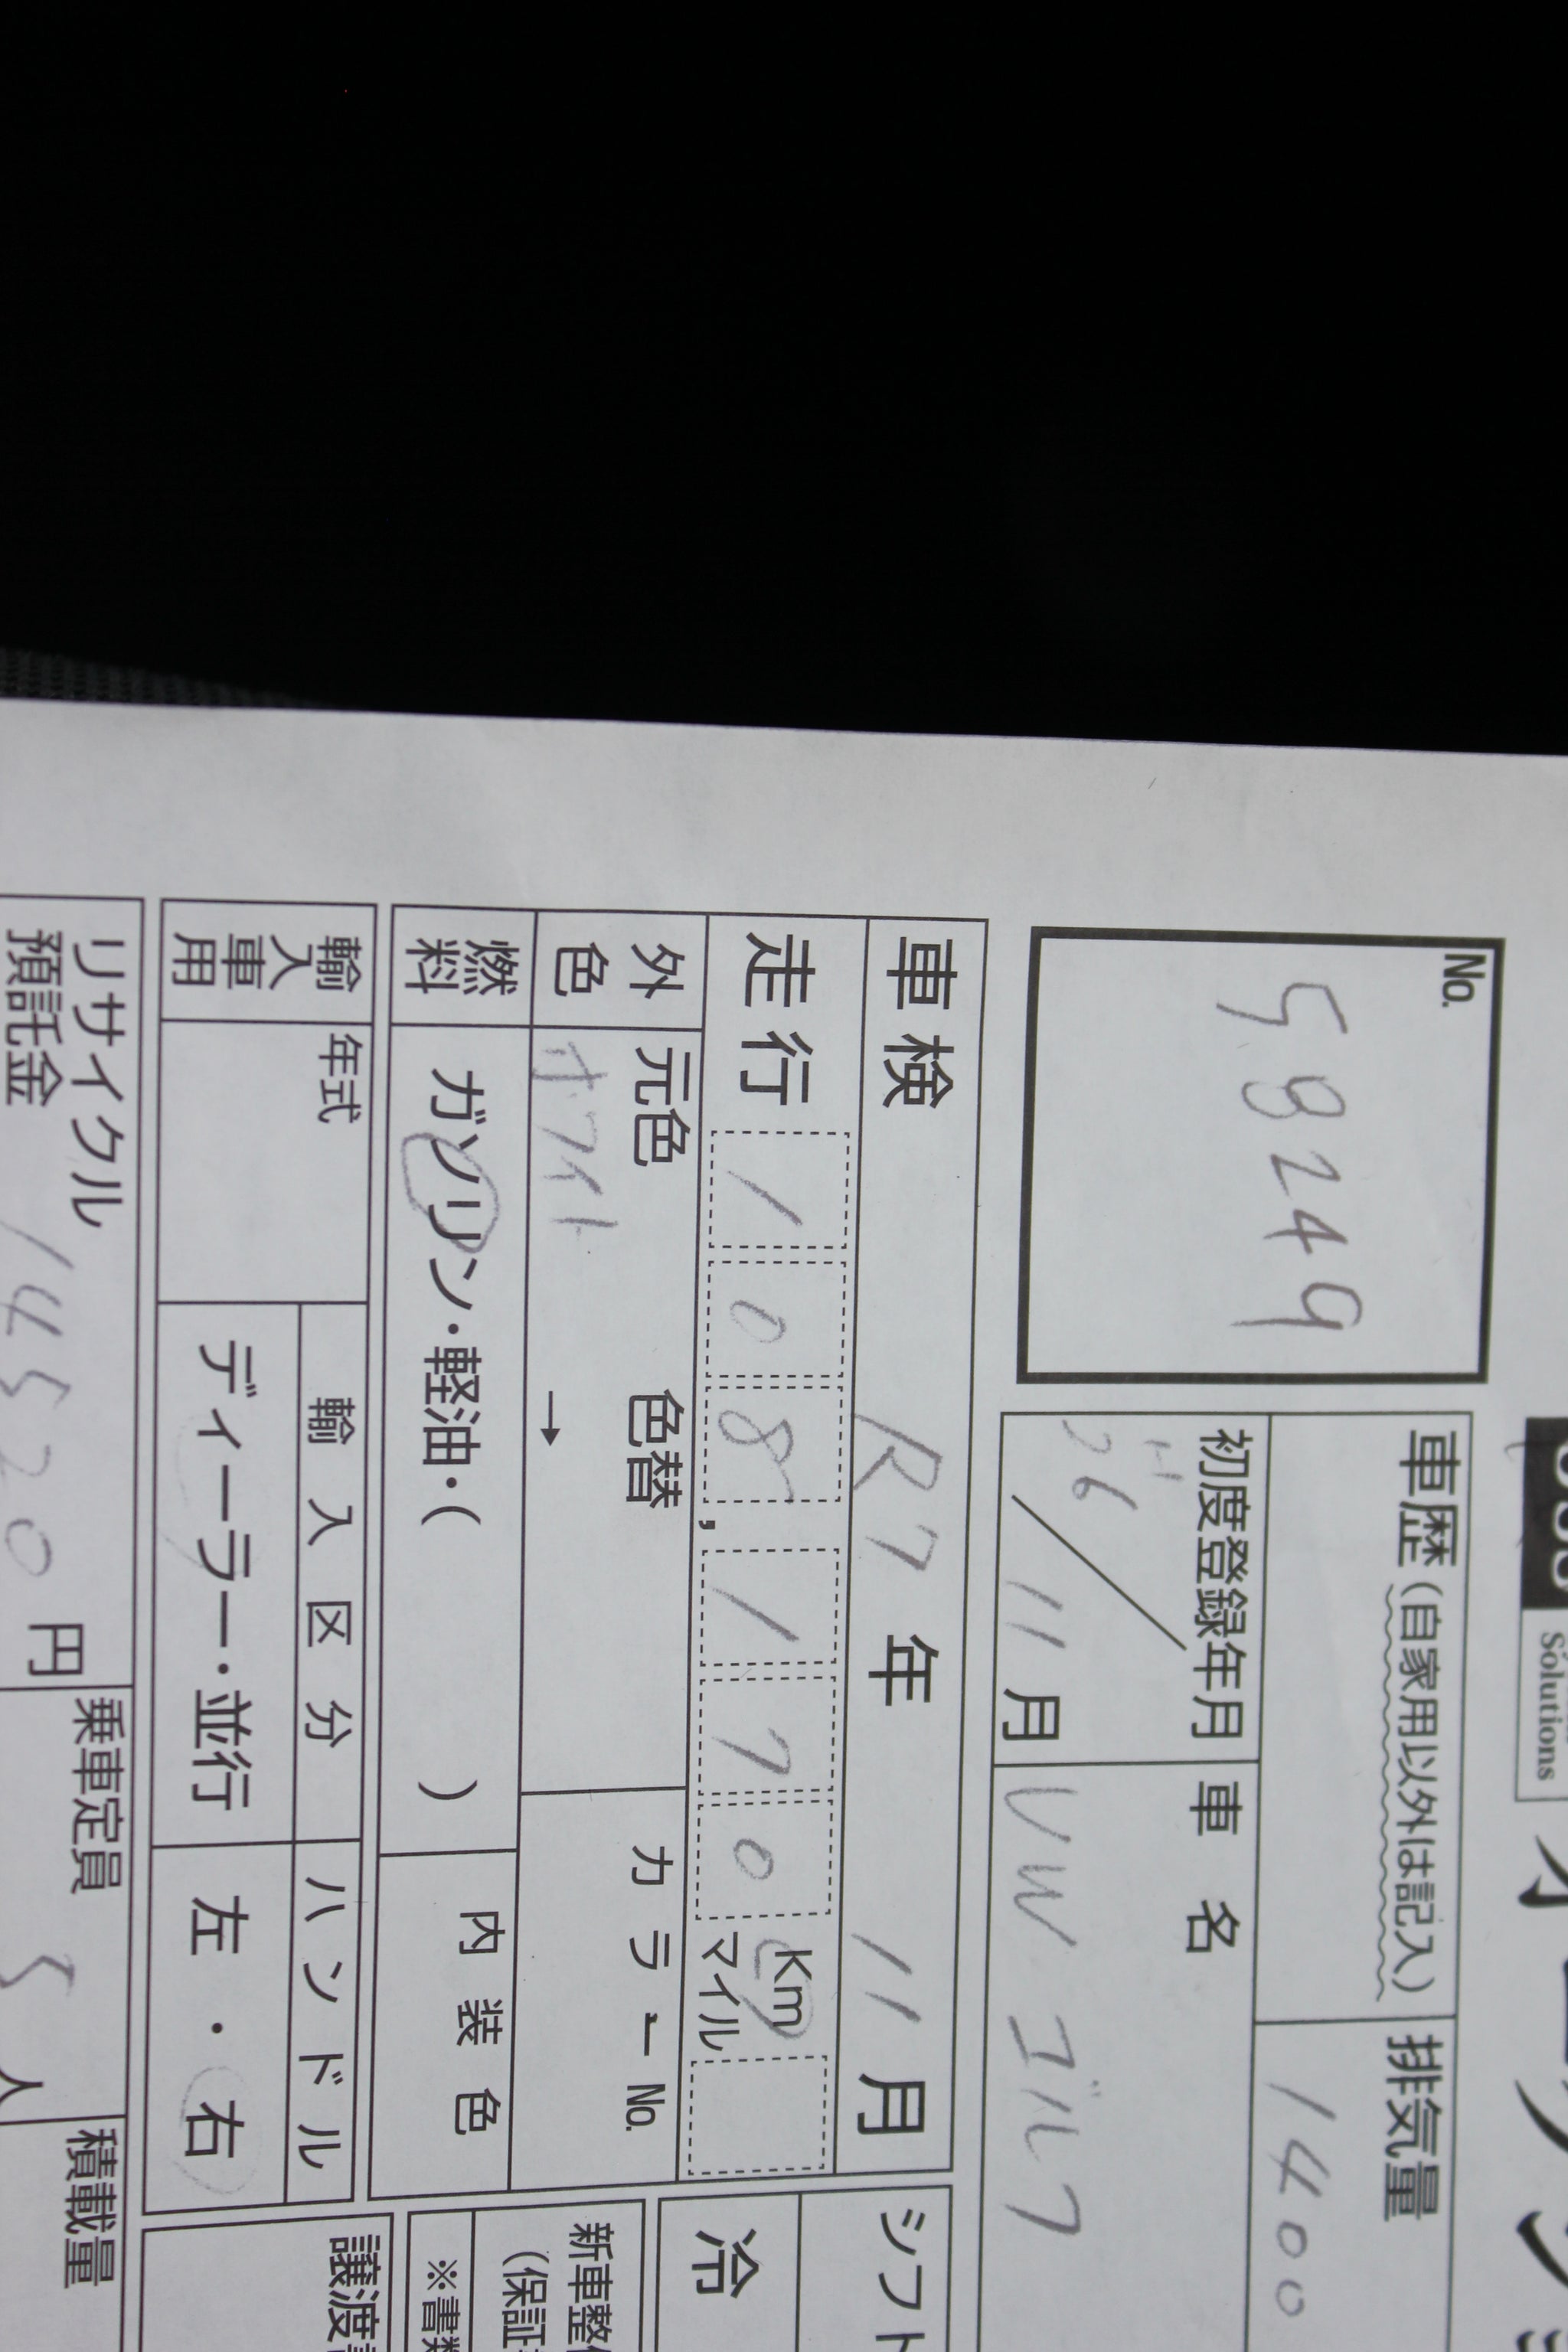 Solutions
No.
58249
車歴(自家用以外は記入)
排気量
1400
初度登録年月
H
26/11月
車名
VW ゴルフ
車検 R7年 11月
シフト
走行 108,170 Km
マイル
冷
外色
元色
色替
カラーNo.
ホワイト
→
燃料
ガソリン・軽油・( )
内装色
新車整
(保証
※書類
輸入車用
年式
輸入区分
ハンドル
ディーラー・並行
左・右
譲渡
リサイクル
預託金
14520円
乗車定員
5人
積載量